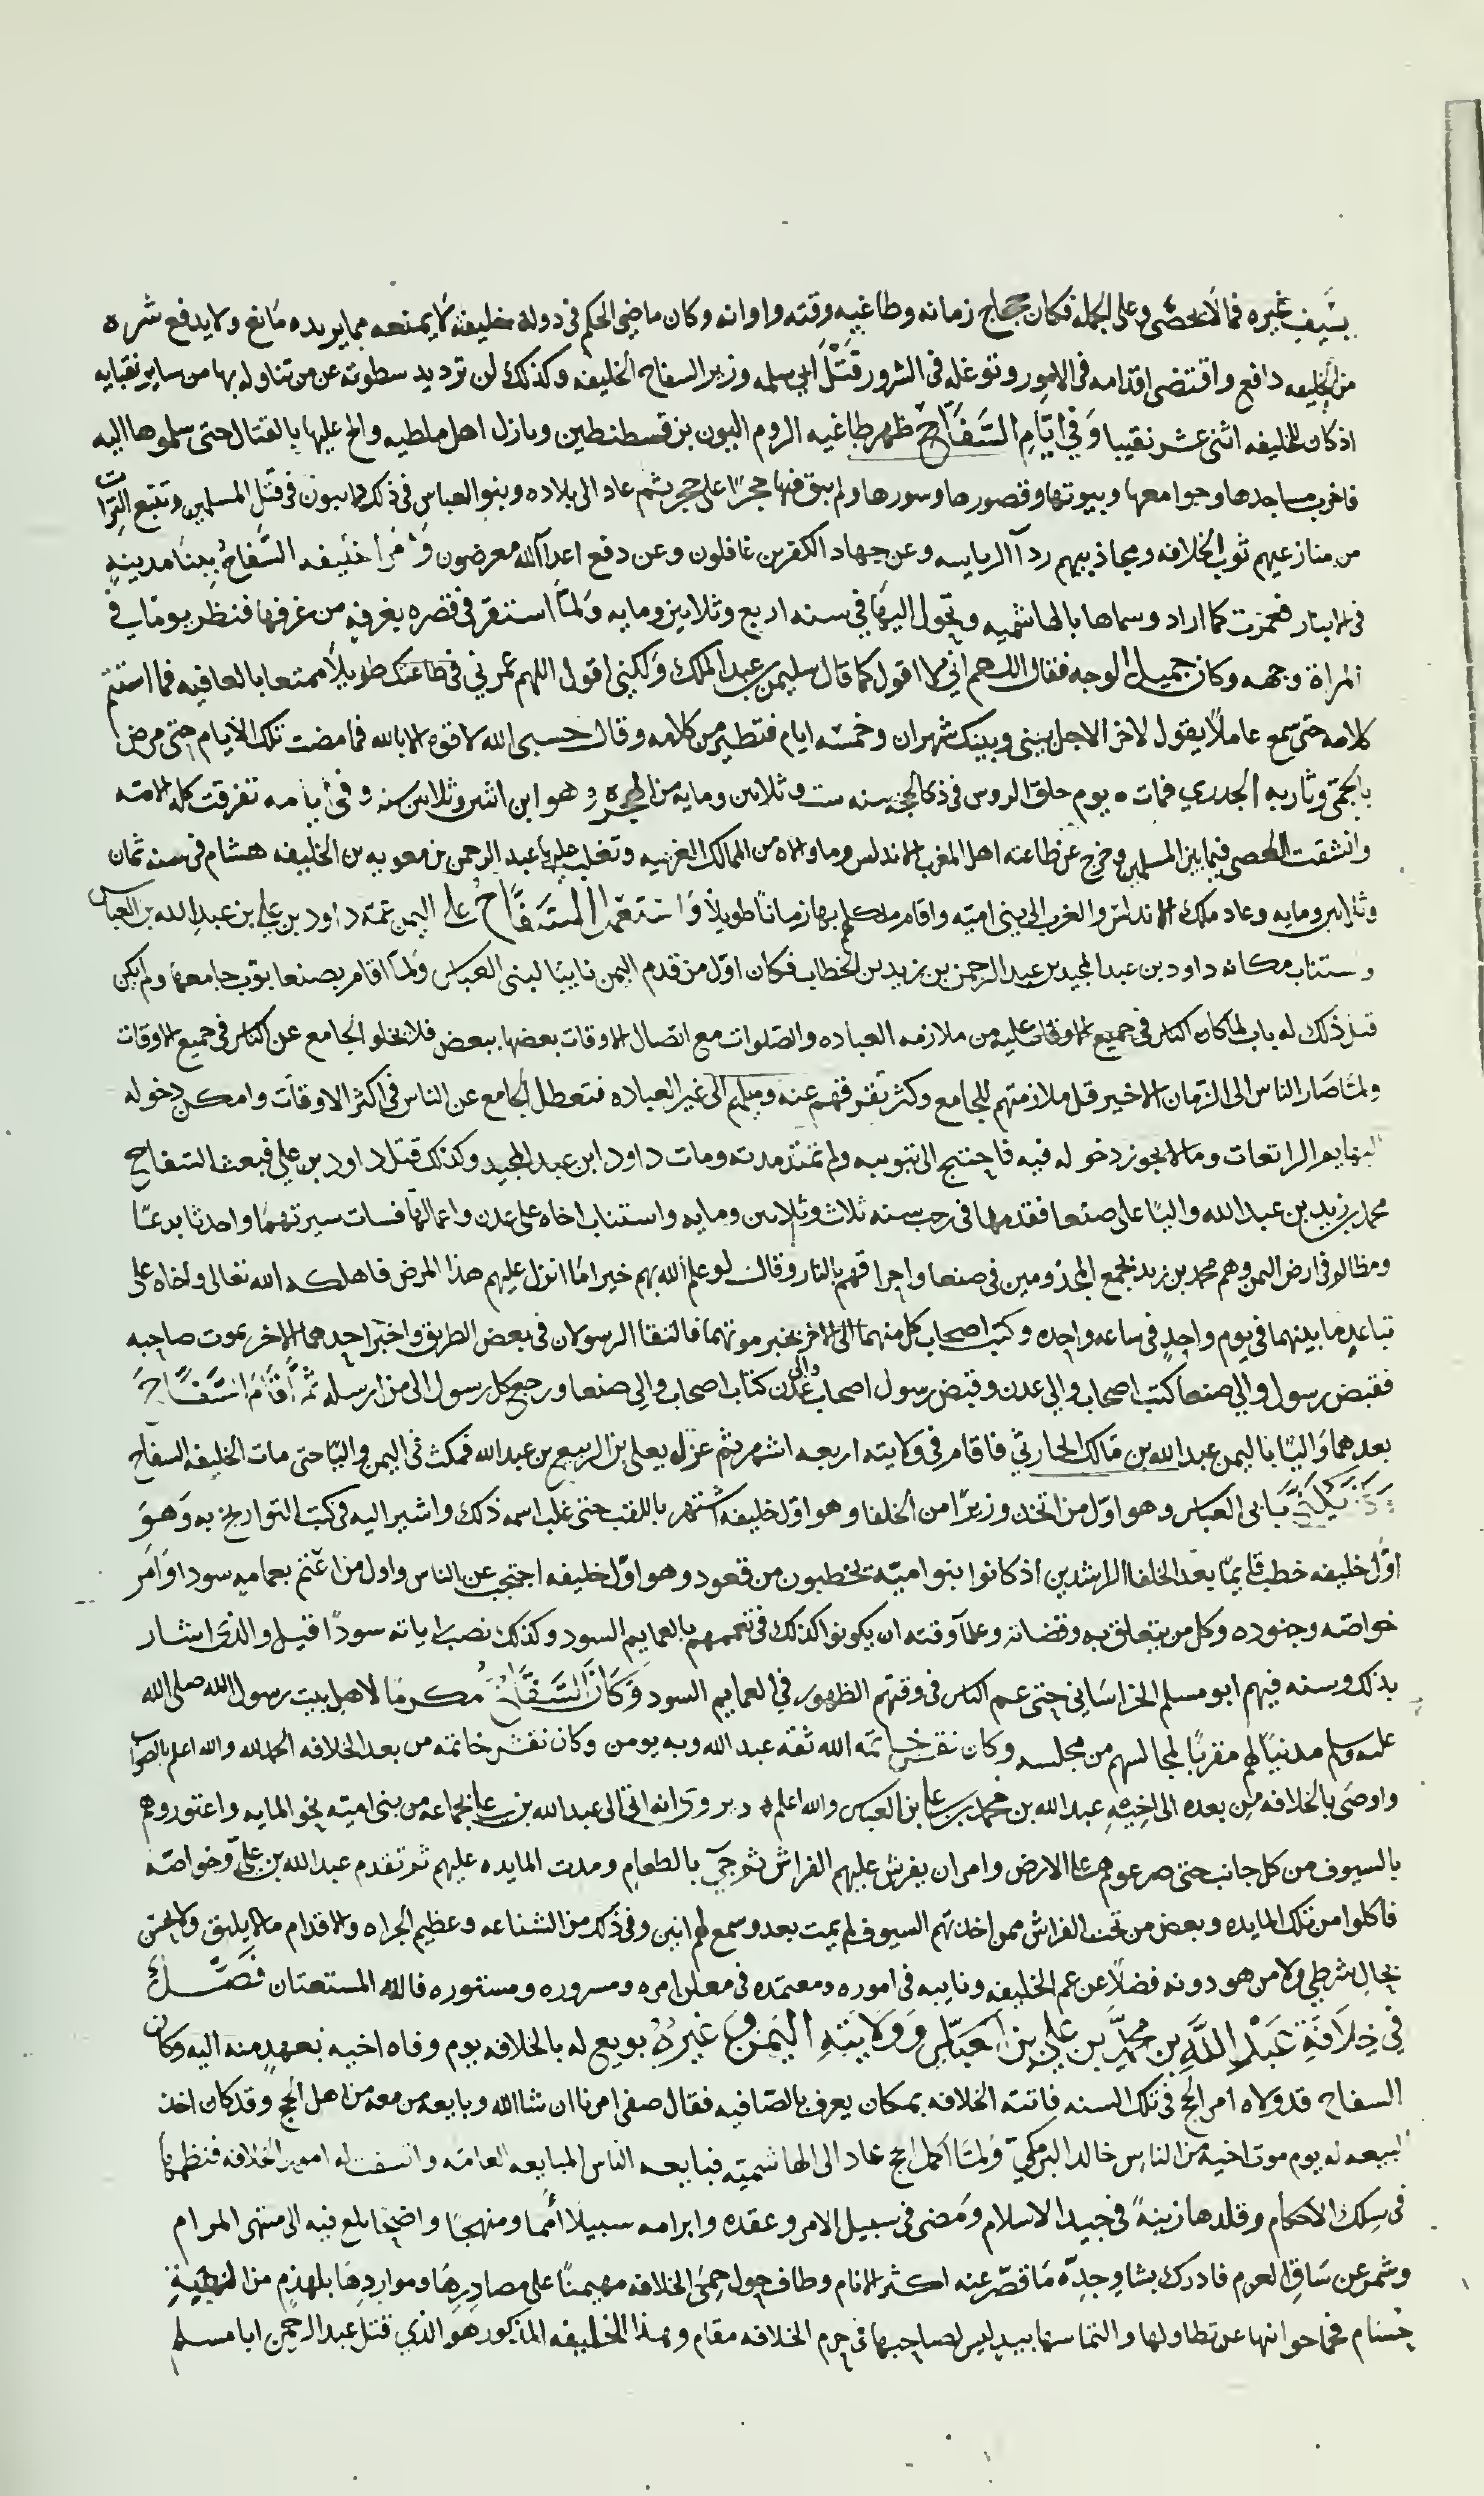 بسيف غيره فما لا يحصى وعلى الجمله فكان حجاج زمانه وطاغيه وقته واوانه وكان ماضي الحكم في دولة خليفته لا يمنعه مما يريده مانع ولا يدفع شره
من الخليفه دافع واقتضى اقدامه في الامور وتوغله في الشرور قتل ابي سلمه وزير السفاح الخليفه وكذلك لن ترد يد سطوته عن من تناوله بها من ساير نقبايه
اذ كان للخليفه اثنى عشر نقيبا وفي ايام السفاح ظهر طاغيه الروم اليون بن قسطنطين ونازل اهل ملطيه والح عليها بالقتال حتى سلموها اليه
فاخرب مساجدها وجوامعها وبيوتها وقصورها وسورها ولم يبق فيها حجرا على حجر ثم عاد الى بلاده وبنو العباس في ذلك دايبون في قتل المسلمين وتتبع التراث
من منازعيهم ثوب الخلافه ومجاذبيهم ردآ الرياسه وعن جهاد الكفرين غافلون وعن دفع اعدآ الله معرضون وامر الخليفه السفاح ببنا مدينة
في الانبار فعمرت كما اراد وسماها بالهاشميه وتحول اليها في سنه اربع وثلاثين ومايه ولما استقر في قصره بغرفه من غرفها فنظر يوما في
المراة وجهه وكان جميل الوجه فقال اللهم اني لا اقول كما قال سليمن بن عبد الملك ولكني اقول اللهم عمرني في طاعتك طويلا ممتعا بالعافيه فما استتم
كلامه حتى سمع عاملا يقول لاخر الاجل بيني وبينك شهران وخمسه ايام فتطير من كلامه وقال حسبي الله لا قوه الا بالله فما مضت تلك الايام حتى مرض
بالحمى وثار به الجدري فمات يوم حلق الروس في ذي الحجه سنه ست وثلاثين ومايه من الهجره وهو ابن اثنين وثلاثين سنه وفي ايامه تفرقت كلمه الامه
وانشقت العصى فيما بين المسلمين وخرج عن طاعته اهل المغرب الاندلس وما والاه من الممالك الغربيه وتغلب عليها عبد الرحمن بن معويه بن الخليفه هشام في سنه ثمان
وثلاثين ومايه وعاد ملك الاندلس والغرب الى بني اميه واقام ملكهم بها زمانا طويلا واستعمل السفاح على اليمن عمه داود بن علي بن عبد الله بن العباس
واستناب مكانه داود بن عبد المجيد بن عبد الرحمن بن زيد بن الخطاب فكان اول من قدم اليمن نايبا لبني العباس ولما اقام بصنعا بوب جامعها ولم يكن
قبل ذلك له باب لما كان الناس في جميع الاوقات عليه من ملازمه العباده والصلوات مع اتصال الاوقات بعضها ببعض فلا يخلو الجامع عن الناس في جميع الاوقات
ولما صار الناس الى الزمان الاخير قل ملازمتهم للجامع وكثر تفرقهم عنه وميلهم الى غير العباده فتعطل الجامع عن الناس في اكثر الاوقات وامكن دخوله
البهايم الراتعات وما لا يجوز دخوله فيه فاحتيج الى تبويبه ولم تمتد مدته ومات داود ابن عبد المجيد وكذلك قتل داود بن علي فبعث السفاح
محمد بن زيد بن عبد الله واليا على صنعا فقدمها في رجب سنه ثلاث وثلاثين ومايه واستناب اخاه على عدن واعمالها فسات سيرتهما واحدثا بدعا
ومظالم في ارض اليمن وهم محمد بن زيد بجمع المجذومين في صنعا واحراقهم بالنار وقال لو علم الله بهم خيرا ما انزل عليهم هذا المرض فاهلكه الله تعالى واخاه على
تباعد ما بينهما في يوم واحد في ساعه واحده وكتب اصحاب كل منهما الى الاخر بخبر موتهما فالتقا الرسولان في بعض الطريق واخبر احدهما الاخر بموت صاحبه
فقبض رسول والي صنعا كتب اصحاب والي عدن وقبض رسول اصحاب والي عدن كتاب اصحاب والي صنعا ورجع كل رسول الى من ارسله ثم اقام السفاح
بعدهما واليا باليمن عبد الله بن مالك الحارثي فاقام في ولايته اربعه اشهر ثم عزله بعلي بن الربيع بن عبد الله فمكث في اليمن واليا حتى مات الخليفه السفاح
ابي العباس وهو اول من اتخذ وزيرا من الخلفا وهو اول خليفه اشتهر باللقب حتى غلب اسمه ذلك واشير اليه في كتب التواريخ به وهو
اول خليفه خطب قايما بعد الخلفا الراشدين اذ كانوا بنوا اميه يخطبون من قعود وهو اول خليفه احتجب عن الناس واول من اعتم بعمامه سودا وامر
خواصه وجنوده وكل من يتعلق به وقضاته وعلمآ وقته ان يكونوا كذلك في تعممهم بالعمايم السود وكذلك نصب راياته سودا قيل والذي اشار
بذلك وسنه فيهم ابو مسلم الخراساني حتى عم الناس في وقتهم الظهور في العمايم السود وكان السفاح مكرما لاهل بيت رسول الله صلى الله
عليه وسلم مدنيا لهم مقربا لمجالسهم من مجلسه وكان نقش خاتمه الله ثقة عبد الله وبه يومن وكان نقش خاتمه من بعد الخلافه الحمد لله والله اعلم بالصواب
واوصى بالخلافه من بعده الى اخيه عبد الله بن محمد بن علي ابن العباس والله اعلم انه اتى الى عبد الله بن علي بجماعه من بني اميه نحو المايه واعتوروهم
بالسيوف من كل جانب حتى صرعوهم على الارض وامر ان يفرش عليهم الفراش ثم جيء بالطعام ومدت المايده عليهم ثم تقدم عبد الله بن علي وخواصه
فاكلوا من تلك المايده وبعض من تحت الفراش ممن اخذتهم السيوف لم يمت بعد وسمع لهم انين وفي ذلك من الشناعه وعظيم الجراه والاقدام ما لا يليق ولا يحسن
بحال شرطي ولا من هو دونه فضلا عن عم الخليفه ونايبه في اموره ومعتمده في معلن امره ومسروره ومستوره فالله المستعان فصل
في خلافة عبد الله بن محمد بن علي بن العباس وولايته اليمن وغيره بويع له بالخلافه يوم وفاه اخيه بعهد منه اليه وكان
السفاح قد ولاه امر الحج في تلك السنه فاتته الخلافه بمكان يعرف بالصافيه فقال صفي امرنا ان شا الله وبايعه من معه من اهل الحج وقد كان اخذ
البيعه له يوم موت اخيه من الناس خالد البرمكي ولما اكمل الحج عاد الى الهاشميه فبايعه الناس المبايعه العامه واتسقت له امور الخلافه فنظمها
في سلك الاحكام وقلدها زينة في جيد الاسلام ومضى في سبيل الامر وعقده وابرامه سبيلا امما ومنهجا واضحا بلغ فيه الى منتهى المرام
وشمر عن ساق العزم فادرك بشاو جده ما قصر عنه اكثر الانام وطاف حول حمى الخلافه مهيمنا على مصادرها ومواردها بلهذم من المنية
وحسام فحما حوانها عن تطاولها والتماسها بيد ليس لصاحبها في حرم الخلافه مقام وهذا الخليفه المذكور هو الذي قتل عبد الرحمن ابا مسلم